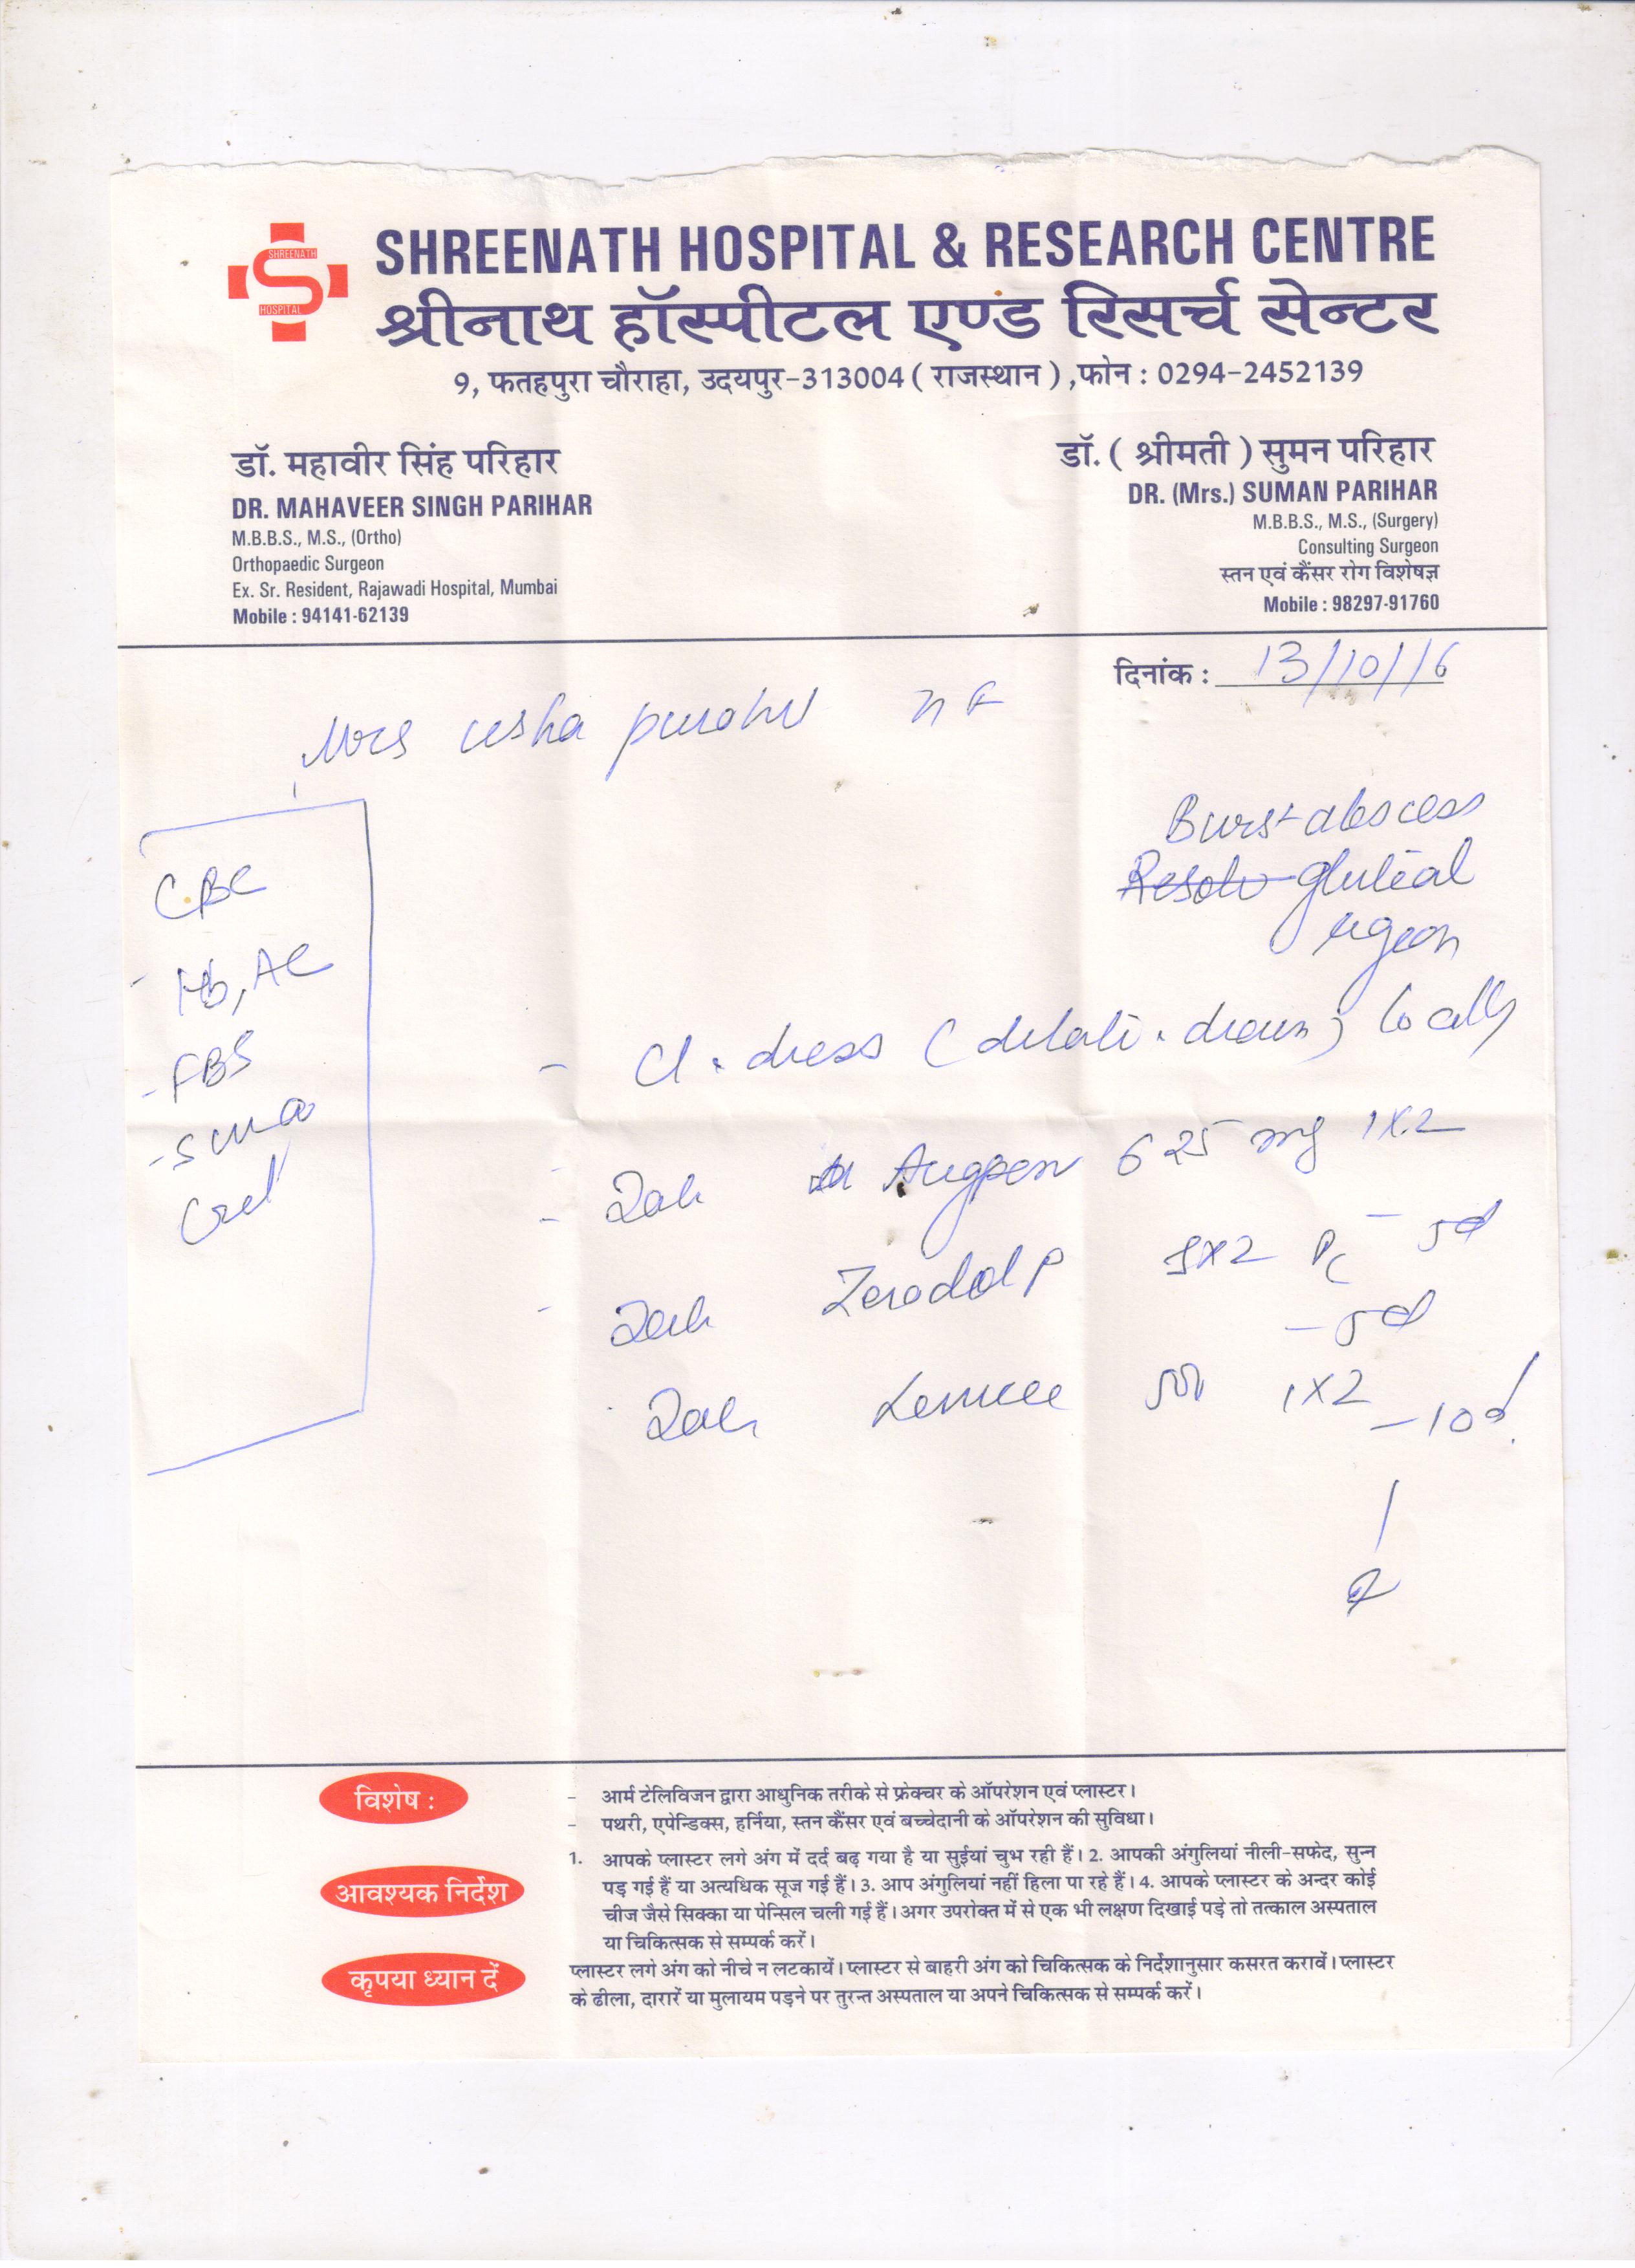 SHREENATH
HOSPITAL
SHREENATH HOSPITAL & RESEARCH CENTRE
श्रीनाथ हॉस्पीटल एण्ड रिसर्च सेन्टर
9, फतहपुरा चौराहा, उदयपुर-313004 ( राजस्थान ) ,फोन : 0294-2452139
डॉ. महावीर सिंह परिहार
DR. MAHAVEER SINGH PARIHAR
M.B.B.S., M.S., (Ortho)
Orthopaedic Surgeon
Ex. Sr. Resident, Rajawadi Hospital, Mumbai
Mobile : 94141-62139
डॉ. ( श्रीमती ) सुमन परिहार
DR. (Mrs.) SUMAN PARIHAR
M.B.B.S., M.S., (Surgery)
Consulting Surgeon
स्तन एवं कैंसर रोग विशेषज्ञ
Mobile : 98297-91760
दिनांक : 13/10/16
Mrs usha purohit
Burst abscess
gluteal
region
CBC
- Hb, AC
- FBS
- S
- Cl. dress ( ) locally
- Tab Augpen 625 mg 1x2
- 5d
- Tab Zerodol P 1x2 PC
- 5d
Tab 1x2
- 10d
विशेष :
- आर्म टेलिविजन द्वारा आधुनिक तरीके से फ्रेक्चर के ऑपरेशन एवं प्लास्टर।
- पथरी, एपेन्डिक्स, हर्निया, स्तन कैंसर एवं बच्चेदानी के ऑपरेशन की सुविधा।
आवश्यक निर्देश
1. आपके प्लास्टर लगे अंग में दर्द बढ़ गया है या सुईयां चुभ रही हैं। 2. आपकी अंगुलियां नीली-सफेद, सुन्न
पड़ गई हैं या अत्यधिक सूज गई हैं। 3. आप अंगुलियां नहीं हिला पा रहे हैं। 4. आपके प्लास्टर के अन्दर कोई
चीज जैसे सिक्का या पेन्सिल चली गई हैं। अगर उपरोक्त में से एक भी लक्षण दिखाई पड़े तो तत्काल अस्पताल
या चिकित्सक से सम्पर्क करें।
कृपया ध्यान दें
प्लास्टर लगे अंग को नीचे न लटकायें। प्लास्टर से बाहरी अंग को चिकित्सक के निर्देशानुसार कसरत करावें। प्लास्टर
के ढीला, दारारें या मुलायम पड़ने पर तुरन्त अस्पताल या अपने चिकित्सक से सम्पर्क करें।